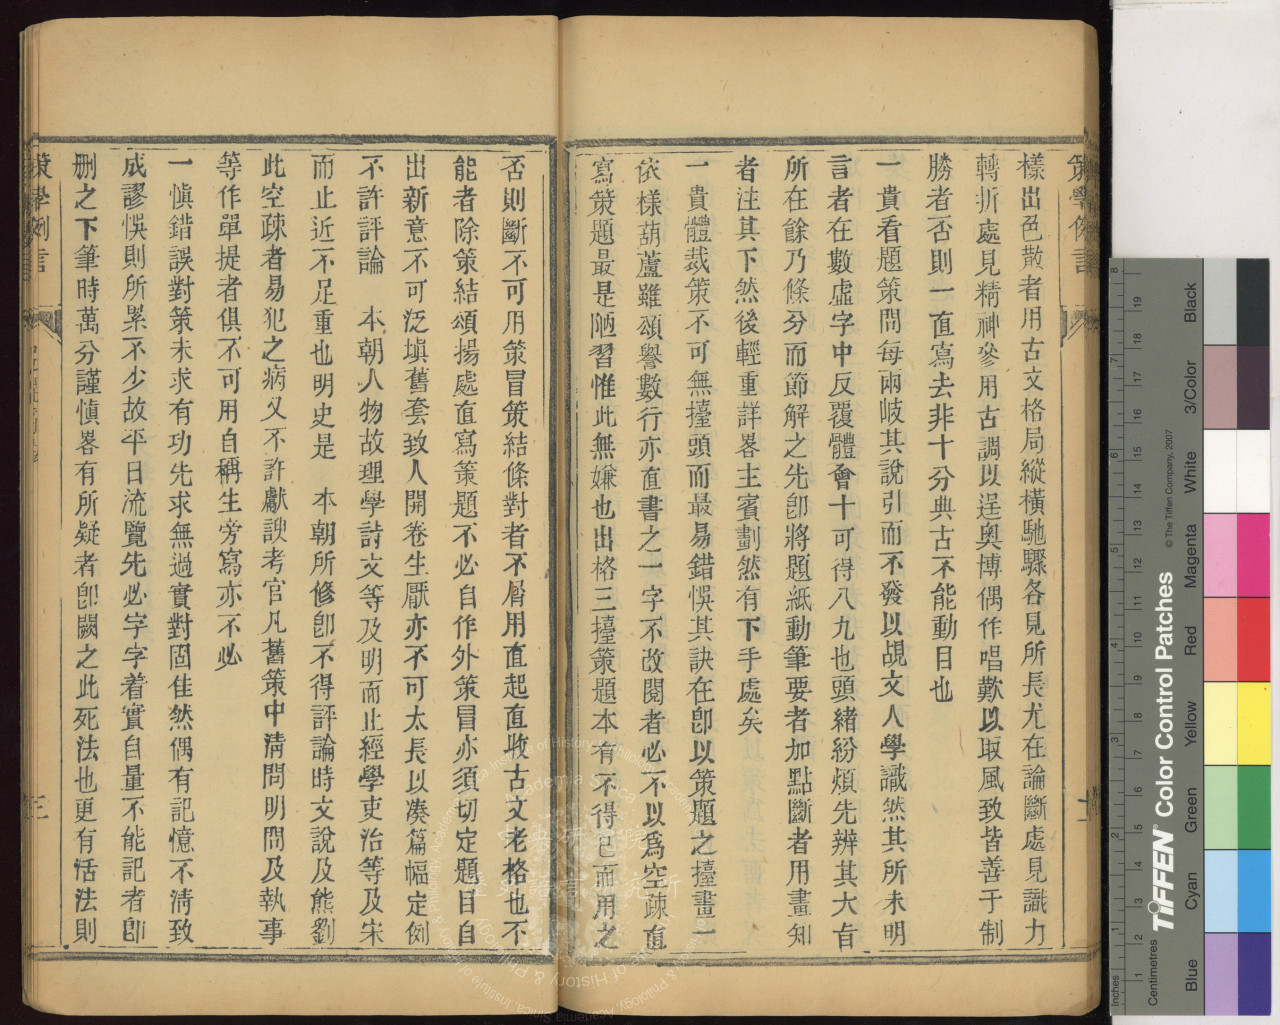 樣出色散者用古文格局縱橫馳驟各見所長尤在論斷處見識力
轉折處見精神參用古調以逞奧博偶作唱歎以取風致皆善于制
勝者否則一直寫去非十分典古不能動目也
一貴看題策問每兩岐其說引而不發以覘文人學識然其所未明
言者在數虛字中反覆體會十可得八九也頭緒紛煩先辨其大旨
所在餘乃條分而節解之先卽將題紙動筆要者加點斷者用畫知
者注其下然後輕重詳畧主賓劃然有下手處矣
一貴體裁策不可無擡頭而最易錯悞其訣在卽以策題之擡畫一
依樣葫蘆雖頌譽數行亦直書之一字不改閱者必不以爲空疎直
寫策題最是陋習惟此無嫌也出格三擡策題本有不得已而用之
否則斷不可用策冒策結條對者不屑用直起直收古文老格也不
能者除策結頌揚處直寫策題不必自作外策冒亦須切定題目自
出新意不可泛塡舊套致人開卷生厭亦不可太長以湊篇幅定例
不許評論 本朝人物故理學詩文等及明而止經學吏治等及宋
而止近不足重也明史是 本朝所修卽不得評論時文說及熊劉
此空疎者易犯之病又不許獻諛考官凡舊策中淸問明問及執事
等作單提者俱不可用自稱生旁寫亦不必
一愼錯誤對策未求有功先求無過實對固佳然偶有記憶不淸致
成謬悞則所累不少故平日流覽先必字字着實自量不能記者卽
删之下筆時萬分謹愼畧有所疑者卽闕之此死法也更有活法則
策學例言
三
Tiffen Color Control Patches
© The Tiffen Company, 2007
Inches
Centimetres
Blue
Cyan
Green
Yellow
Red
Magenta
White
3/Color
Black